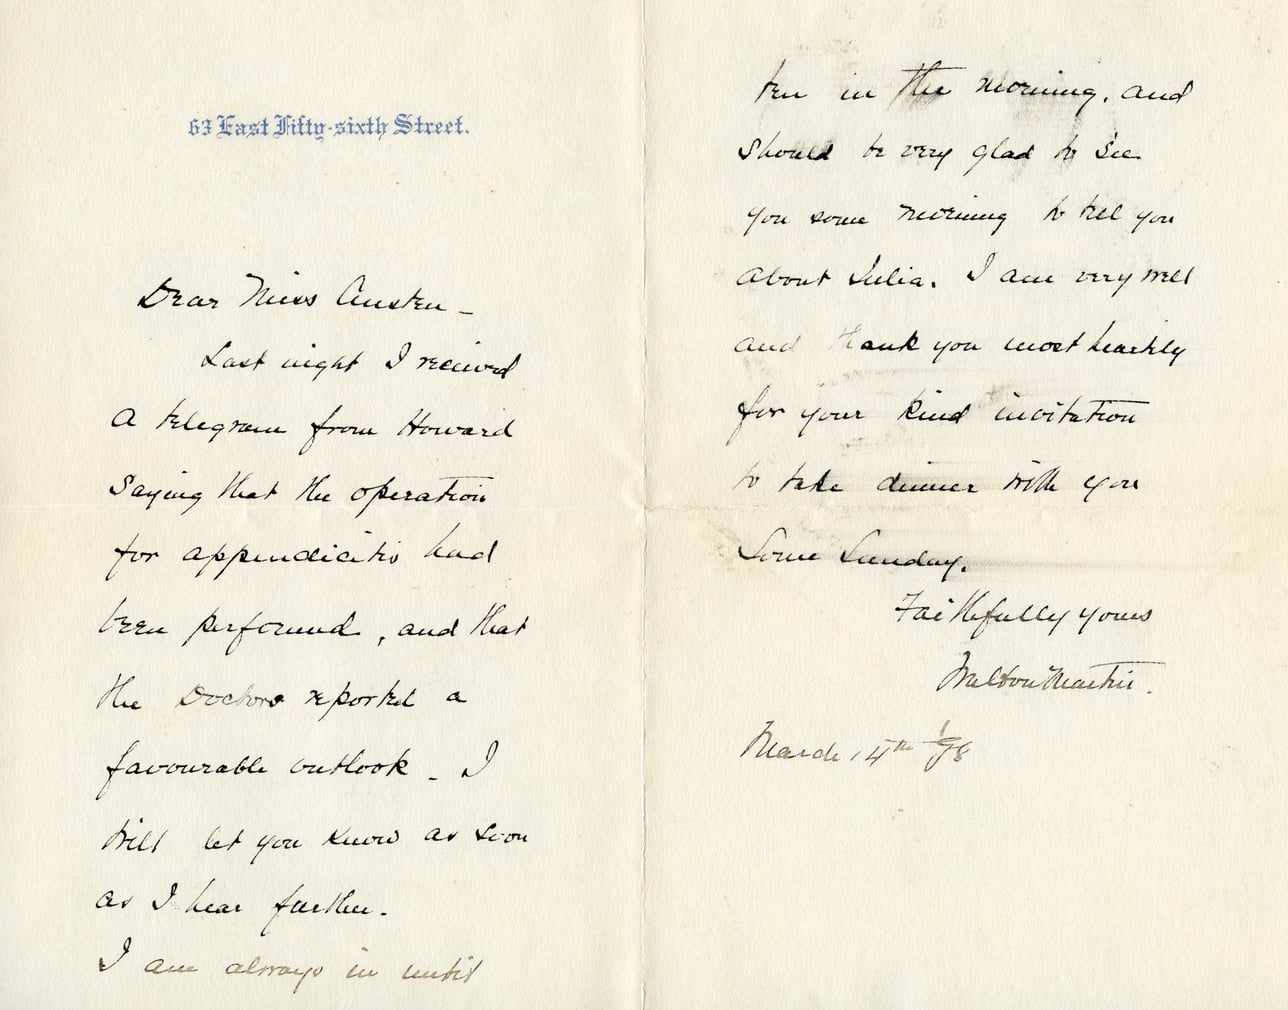 63 East Fifty-sixth Street.
Dear Miss Austen _
Last night I received
a telegram from Howard
saying that the operation
for appendicitis had
been performed, and that
the Doctors reported a
favourable outlook _ I
will let you know as soon
as I hear further.
I am always in until
ten in the morning, and
should be very glad to see
you some morning to tell you
about Julia. I am very well
and thank you most heartily
for your kind invitation
to take dinner with you
some Sunday.
Faithfully yours
Walton Martin.
March 14th /98